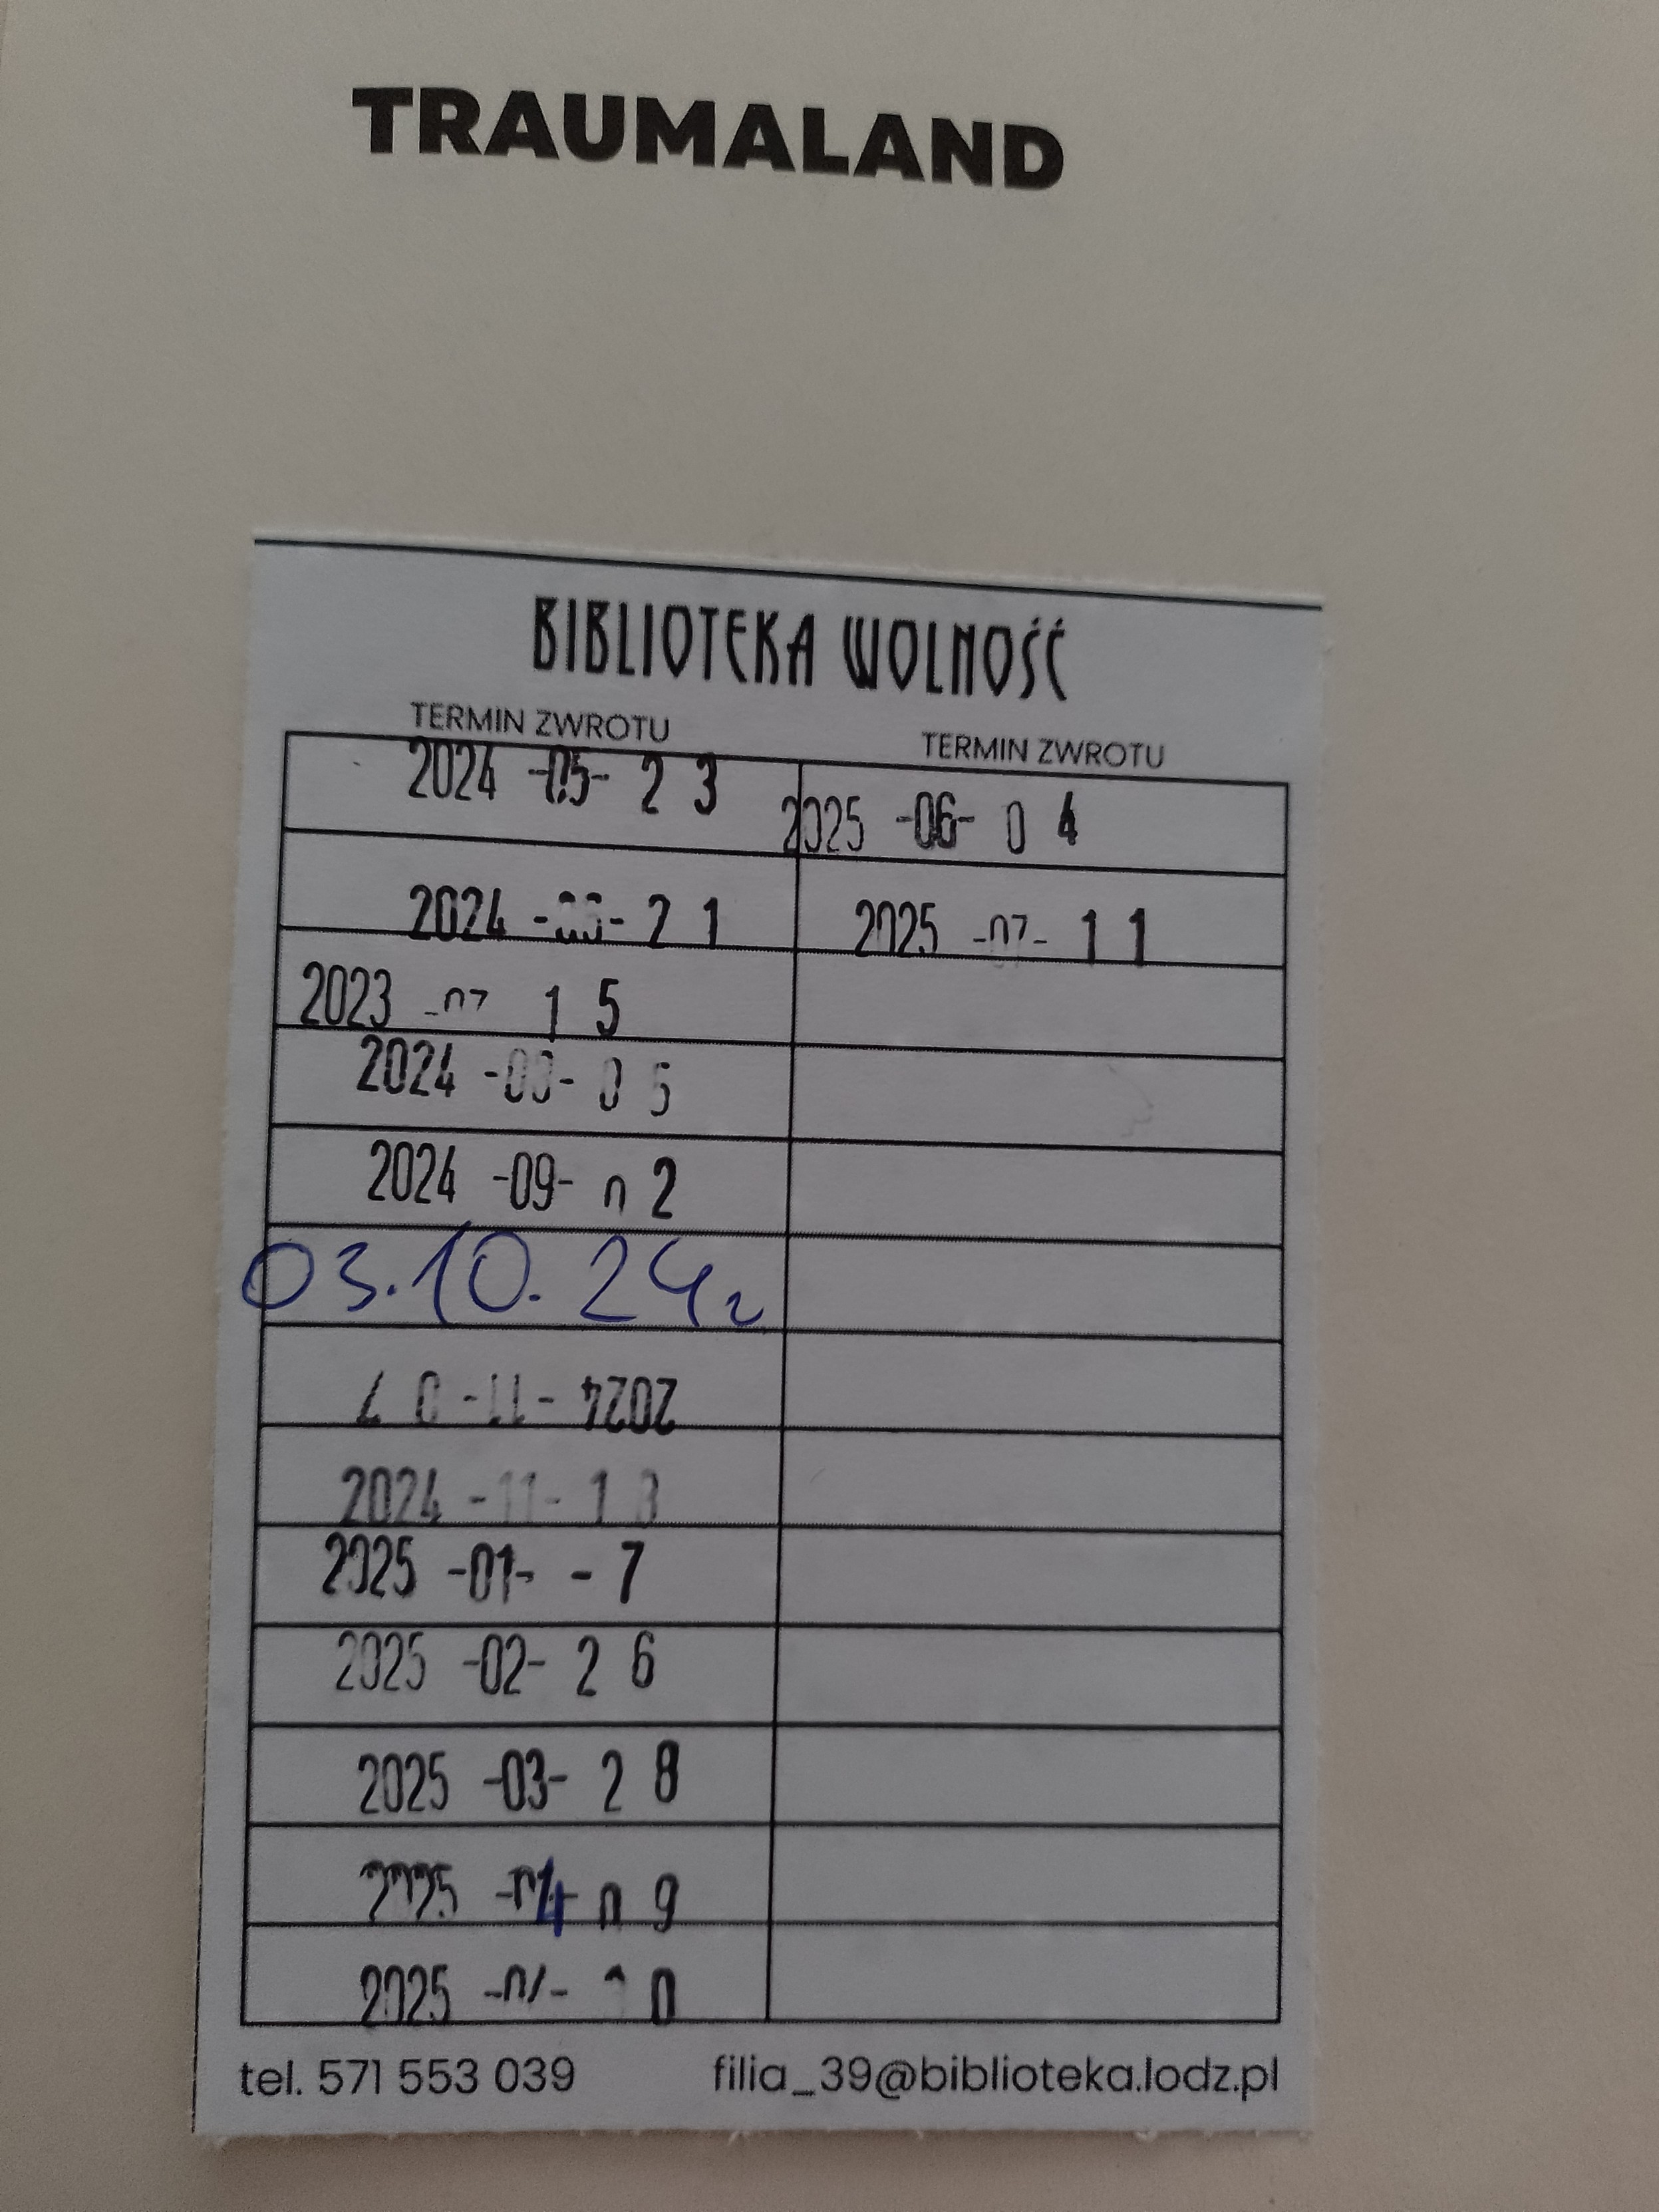 TRAUMALAND
BIBLIOTEKA WOLNOŚĆ
TERMIN ZWROTU TERMIN ZWROTU
2024 -05- 2 3 2025 -06- 0 4
2024 2 1 2025 -07- 1 1
2023 -07 1 5
2024 0 5
2024 -09- 0 2
03.10.24r
2024 -11- 0 7
2024 -11- 1
2025 -01- - 7
2025 -02- 2 6
2025 -03- 2 8
2025 -04- 0 9
2025
tel. 571 553 039 filia_39@biblioteka.lodz.pl